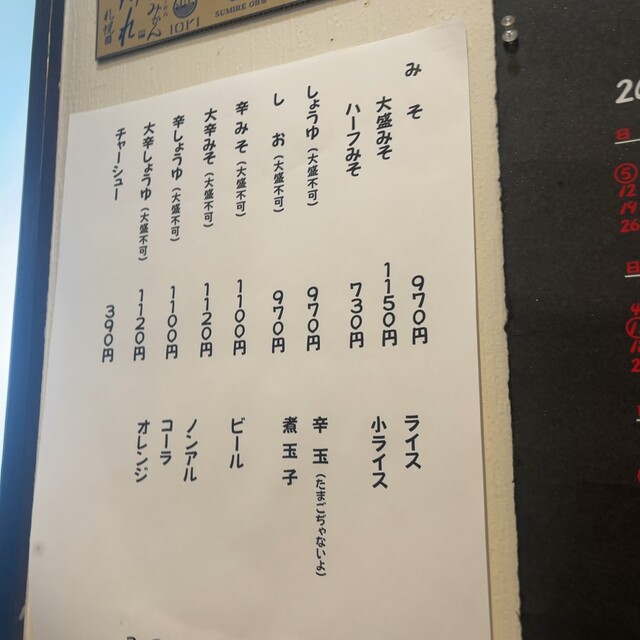 SUMIRE
札幌
みそ 970円
大盛みそ 1150円
ハーフみそ 730円
しょうゆ(大盛不可) 970円
しお(大盛不可) 970円
辛みそ(大盛不可) 1100円
大辛みそ(大盛不可) 1120円
辛しょうゆ(大盛不可) 1100円
大辛しょうゆ(大盛不可) 1120円
チャーシュー 390円
ライス
小ライス
辛玉(たまごぢゃないよ)
煮玉子
ビール
ノンアル
コーラ
オレンジ
20
日
5
12
19
26
日